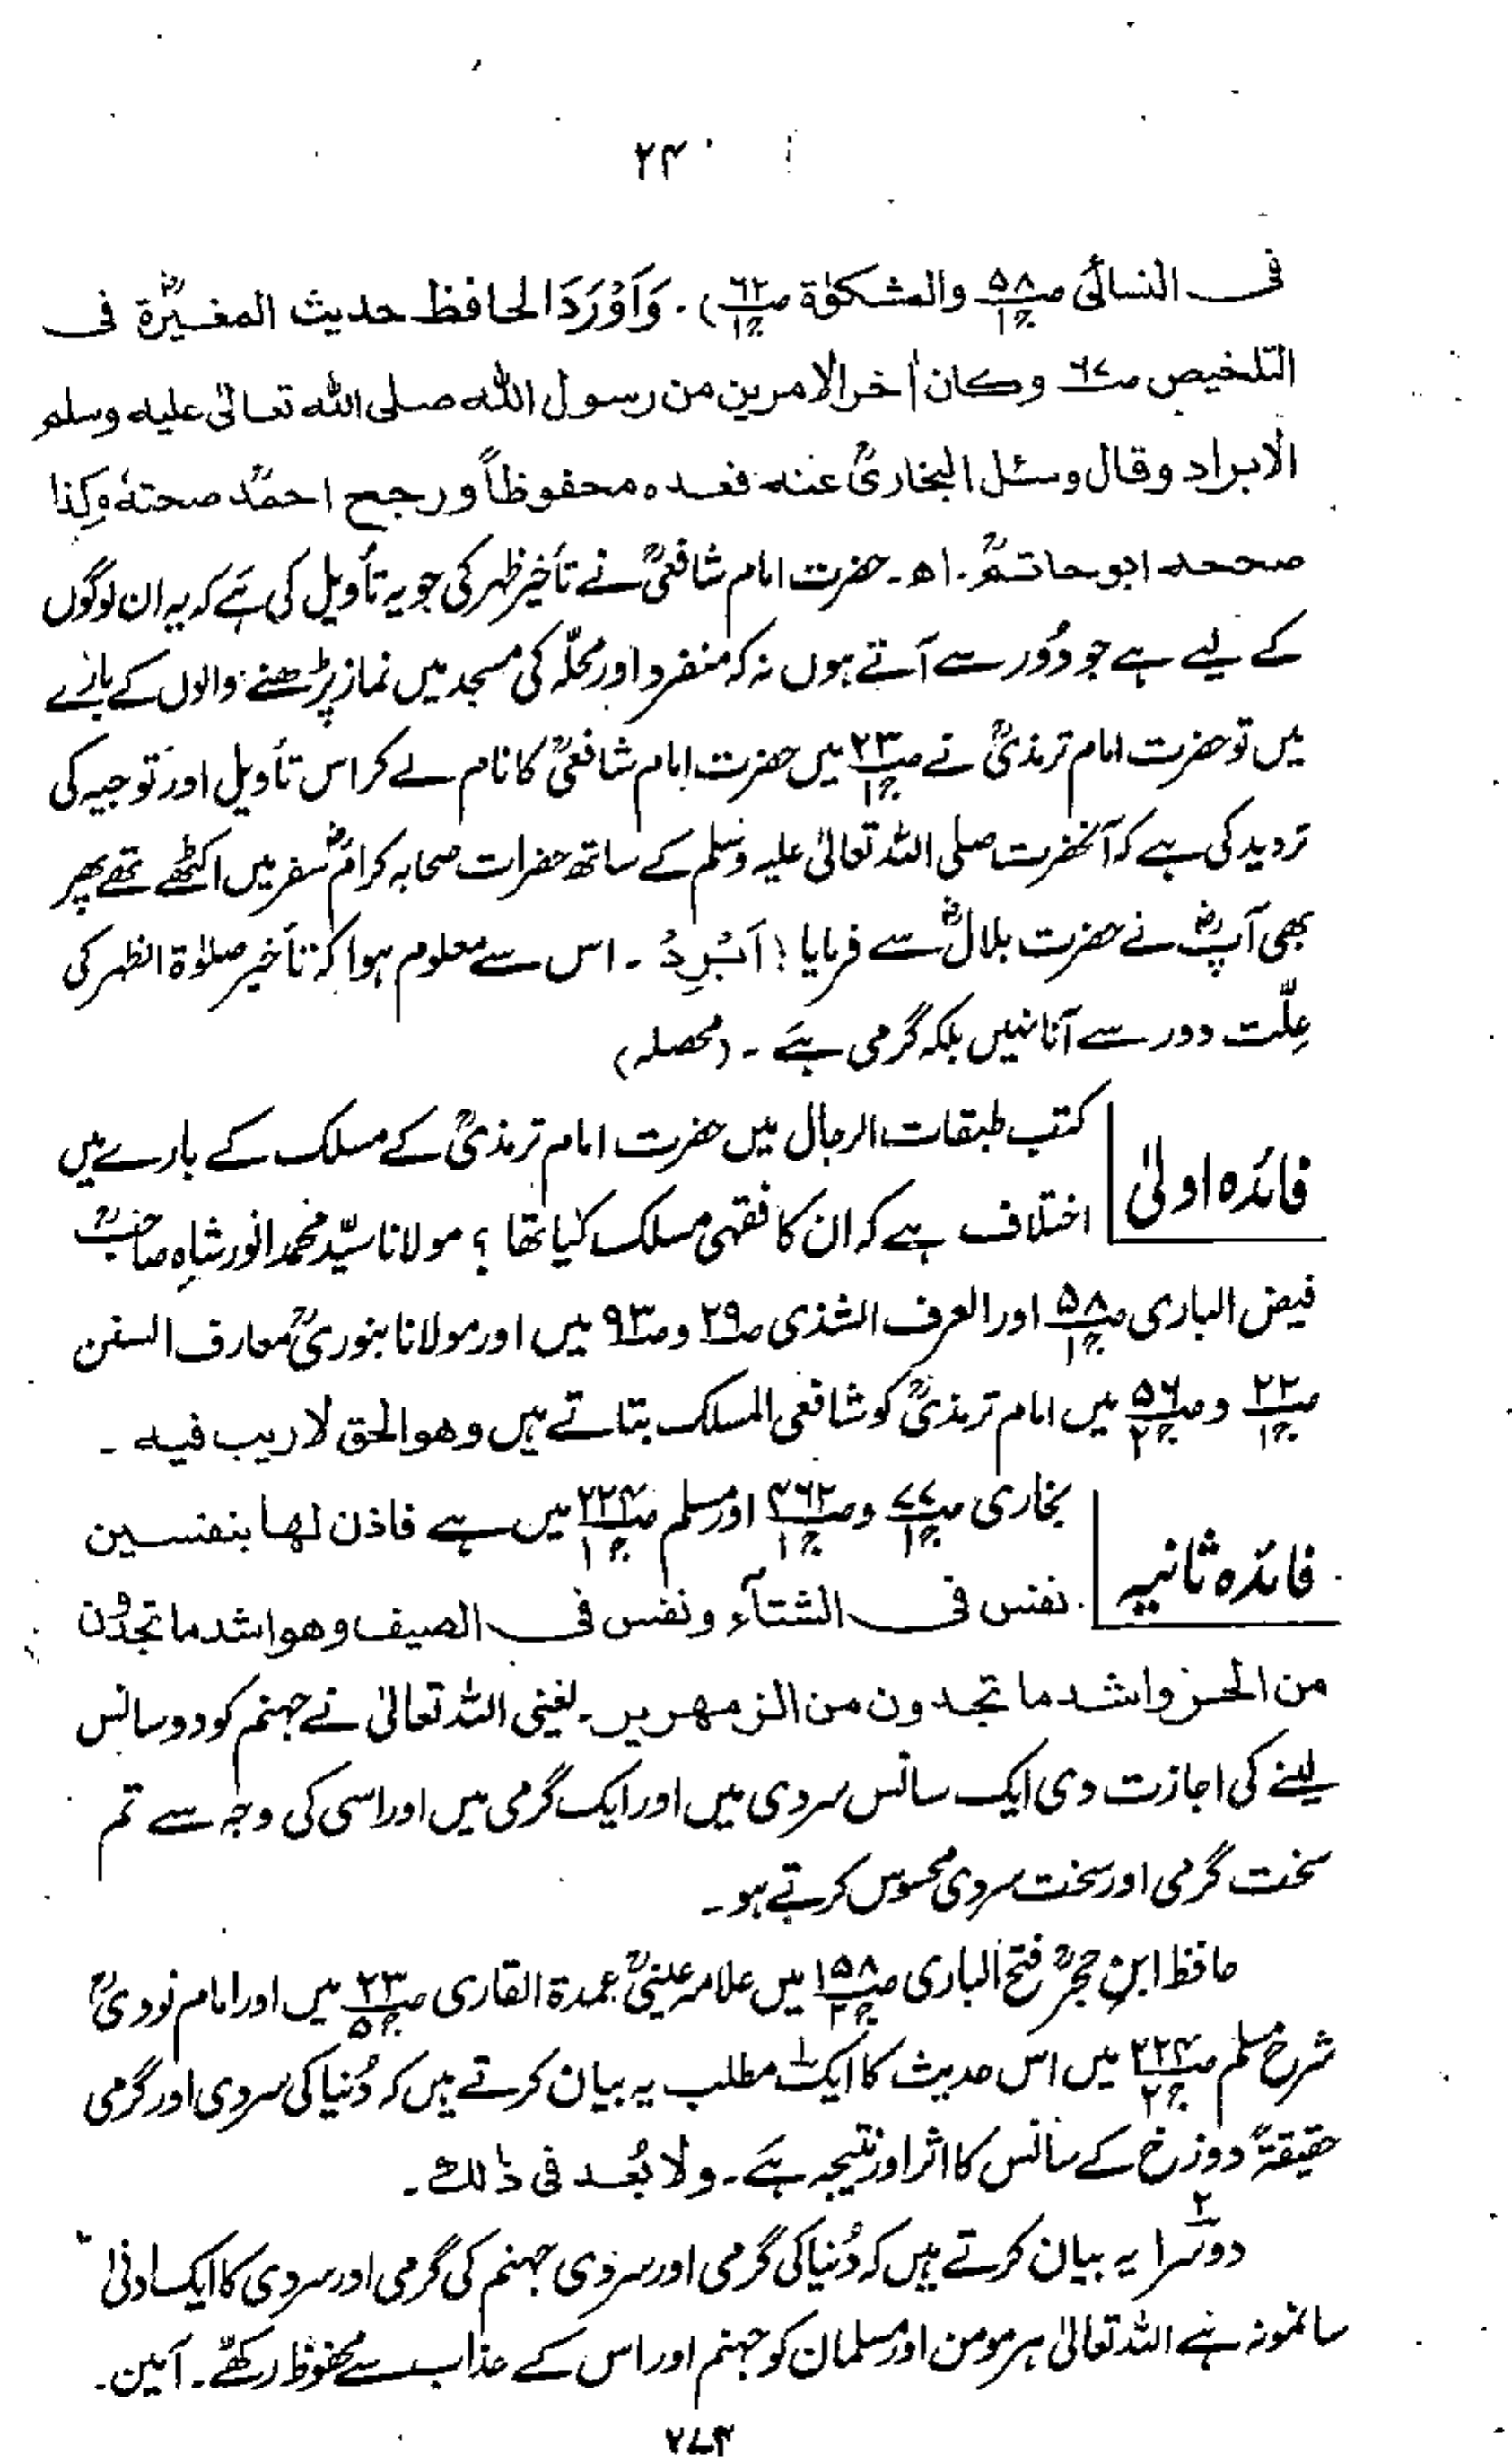 ۲۴۰
فی النسائی ص۵۸ ج۱ والمشکوٰۃ ص۶۲ ج۱)۔ وَاَوْرَدَ الحافظ حدیث المغیرۃؓ فی
التلخیص ص۶۷ وکان اٰخر الامرین من رسول اللہ صلی اللہ تعالیٰ علیہ وسلم
الابراد وقال وسئل البخاریؒ عنہ فعدہ محفوظاً ورجح احمدؒ صحتہٗ وکذا
صححہ ابو حاتمؒ۔ اھ۔ حضرت امام شافعیؒ نے تأخیر ظہر کی جو یہ تأویل کی ہے کہ یہ ان لوگوں
کے لیے ہے جو دُور سے آتے ہوں نہ کہ منفرد اور محلّہ کی مسجد میں نماز پڑھنے والوں کے بارے
میں تو حضرت امام ترمذیؒ نے ص۲۳ ج۱ میں حضرت امام شافعیؒ کا نام لے کر اس تأویل اور توجیہ کی
تردید کی ہے کہ آنحضرت صلی اللہ تعالیٰ علیہ وسلم کے ساتھ حضرات صحابہ کرامؓ سفر میں اکٹھے تھے پھر
بھی آپؐ نے حضرت بلالؓ سے فرمایا: اَبْرِدْ۔ اس سے معلوم ہوا کہ تأخیر صلوٰۃ الظہر کی
عِلّت دور سے آنا نہیں بلکہ گرمی ہے۔ (محصلہ)
فائدہ اولیٰ
کتب طبقات الرجال میں حضرت امام ترمذیؒ کے مسلک کے بارے میں
اختلاف ہے کہ ان کا فقہی مسلک کیا تھا؟ مولانا سیّد محمد انور شاہ صاحبؒ
فیض الباری ص۵۸ ج۱ اور العرف الشذی ص۲۹ و ص۹۳ میں اور مولانا بنوریؒ معارف السنن
ص۲۲ ج۱ و ص۵۶ ج۲ میں امام ترمذیؒ کو شافعی المسلک بتاتے ہیں وھو الحق لا ریب فیہ۔
فائدہ ثانیہ
بخاری ص۷۷ ج۱ و ص۴۶۲ ج۱ اور مسلم ص۲۲۴ ج۱ میں ہے فاذن لھا بنفسین
نفس فی الشتآء ونفس فی الصیف وھو اشد ما تجدون
من الحر واشد ما تجدون من الزمھریر۔ یعنی اللہ تعالیٰ نے جہنم کو دو سانس
لینے کی اجازت دی ایک سانس سردی میں اور ایک گرمی میں اور اسی کی وجہ سے تم
سخت گرمی اور سخت سردی محسوس کرتے ہو۔
حافظ ابنِ حجرؒ فتح الباری ص۱۵۸ ج۲ میں علامہ عینیؒ عمدۃ القاری ص۲۳ ج۵ میں اور امام نوویؒ
شرح مسلم ص۲۲۴ ج۲ میں اس حدیث کا ایک۱ مطلب یہ بیان کرتے ہیں کہ دُنیا کی سردی اور گرمی
حقیقۃً دوزخ کے سانس کا اثر اور نتیجہ ہے۔ ولا بُعد فی ذٰلک۔
دوسرا۲ یہ بیان کرتے ہیں کہ دُنیا کی گرمی اور سردی جہنم کی گرمی اور سردی کا ایک ادنیٰ
سا نمونہ ہے اللہ تعالیٰ ہر مومن اور مسلمان کو جہنم اور اس کے عذاب سے محفوظ رکھے۔ آمین۔